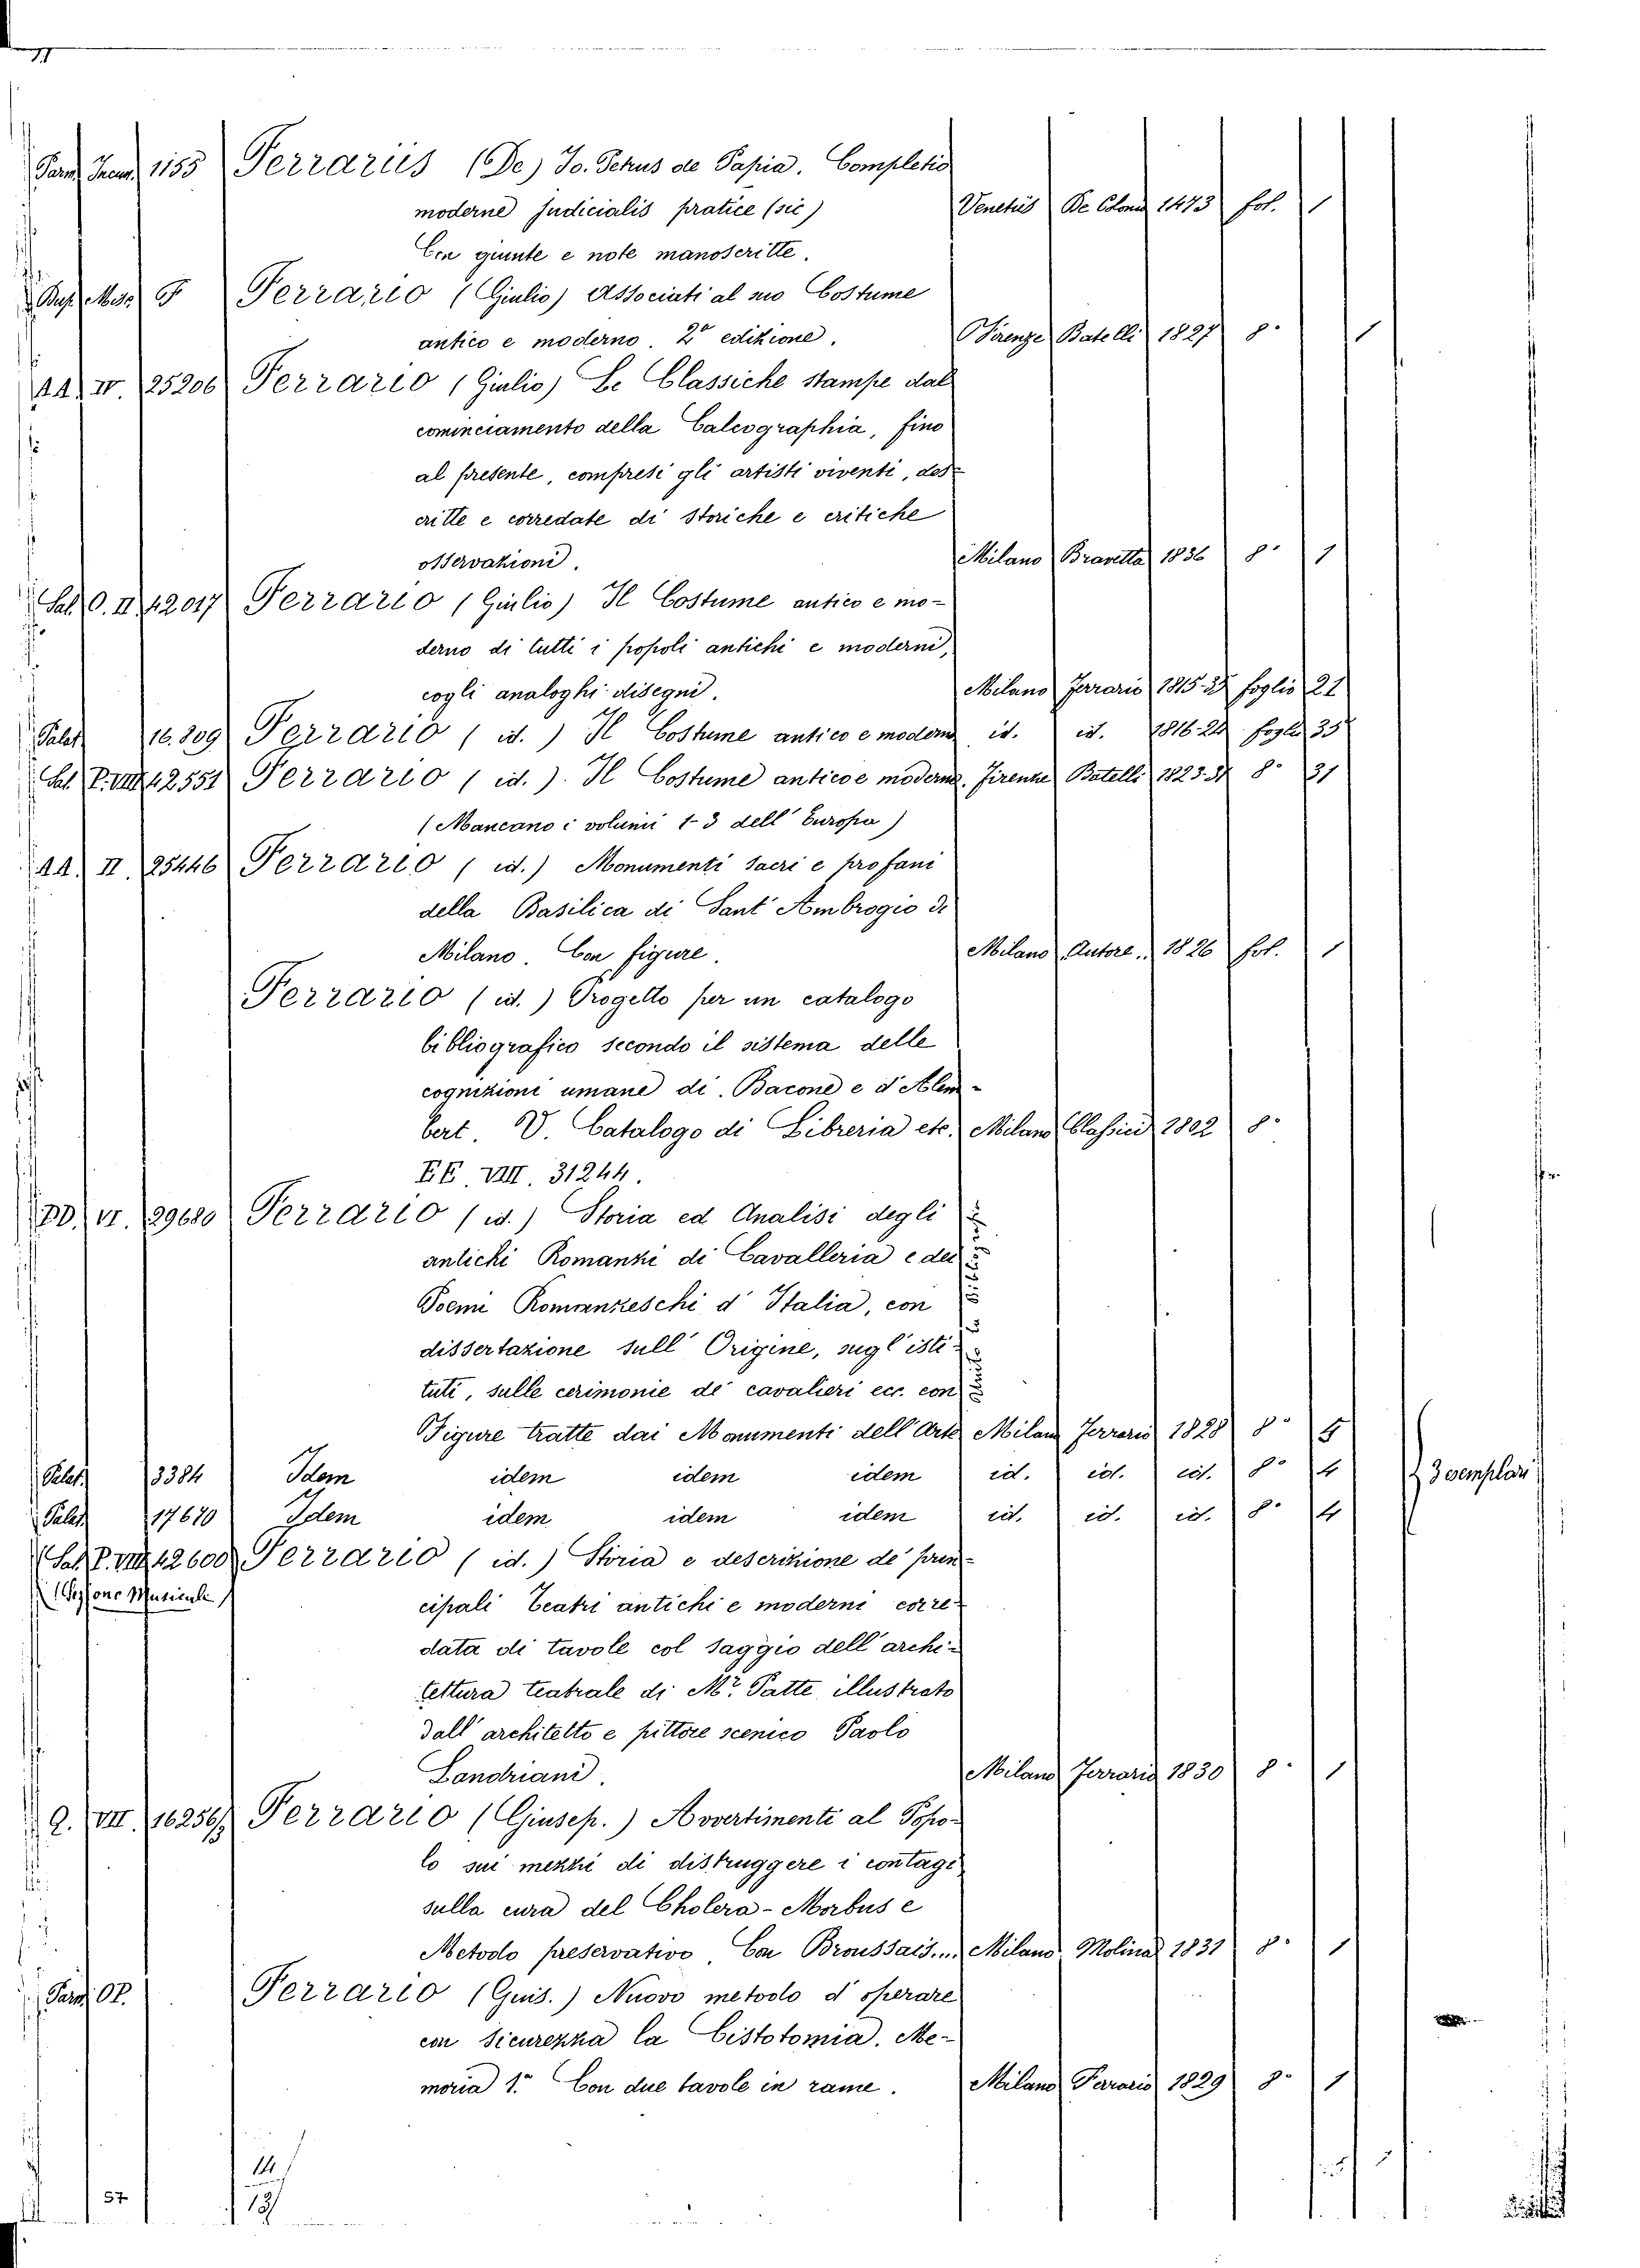 Parm. Incun. 1155 Ferrariis (De) Jo. Petrus de Papia. Completio
moderne judicialis pratice (sic) Venetiis De Colonia 1473 fol. 1
Con giunte e note manoscritte.
Misc. F Ferrario (Giulio) Associati al suo Costume
antico e moderno. 2ª edizione. Firenze Batelli 1827 8º 1
AA. IV. 25206 Ferrario (Giulio) Le Classiche stampe dal
cominciamento della Calcographia, fino
al presente, compresi gli artisti viventi, des-
critte e corredate di storiche e critiche
osservazioni. Milano Bravetta 1836 8º 1
Sal. O. II. 42017 Ferrario (Giulio) Il Costume antico e mo-
derno di tutti i popoli antichi e moderni,
cogli analoghi disegni. Milano Ferrario 1815- foglio 21
Palat. 16.209 Ferrario (id.) Il Costume antico e moderno id. id. 1816-24 foglio 35
Sal. P. VIII 42551 Ferrario (id.). Il Costume antico e moderno. Firenze Batelli 1823-37 8º 31
(Mancano i volumi 1-3 dell'Europa)
AA. II. 25446 Ferrario (id.) Monumenti sacri e profani
della Basilica di Sant'Ambrogio di
Milano. Con figure. Milano Autore. 1826 fol. 1
Ferrario (id.) Progetto per un catalogo
bibliografico secondo il sistema delle
cognizioni umane di. Bacone e d'Alem-
bert. V. Catalogo di Libreria etc. Milano Classici 1802 8º
EE. VIII. 31244.
DD. VI. 29680 Ferrario (id.) Storia ed Analisi degli
antichi Romanzi di Cavalleria e dei
Poemi Romanzeschi d'Italia, con
dissertazione sull'Origine, sugl'isti-
tuti, sulle cerimonie de' cavalieri ecc. con
Figure tratte dai Monumenti dell'Arte Milano Ferrario 1828 8º 4
Palat. 3384 Idem idem idem idem id. id. id. 8º 4 3 esemplari
Palat. 17670 Idem idem idem idem id. id. id. 8º 4
Sal. P. VIII 42600 Ferrario (id.) Storia e descrizione de' prin-
(Sezione Musicale)
cipali Teatri antichi e moderni corre-
data di tavole col saggio dell'archi-
tettura teatrale di Mr. Patte illustrato
dall'architetto e pittore scenico Paolo
Landriani. Milano Ferrario 1830 8º 1
Q. VII. 16256/ Ferrario (Giusep.) Avvertimenti al Popo-
lo sui mezzi di distruggere i contagi
sulla cura del Cholera-Morbus e
Metodo preservativo. Con Broussais.... Milano Molina 1831 8º 1
Parm. OP. Ferrario (Guis.) Nuovo metodo d'operare
con sicurezza la Cistotomia. Me-
moria 1ª Con due tavole in rame. Milano Ferrario 1829 8º 1
14
57
13